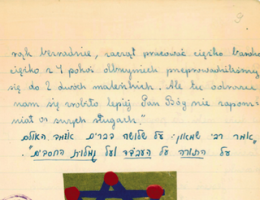 bernadnie, zaczął pracować ciężko bardzo
ciężko z 4 pokoi olbrzymich przeprowadziliśmy
się do 2 dwóch maleńkich. Ale tu odrazu
nam się zrobiło lepiej Pan Bóg nie zapom-
niał o swych sługach."
אומר רבי שמעון: על שלושה דברים העולם
על התורה על העבודה ועל גמילות החסדים".